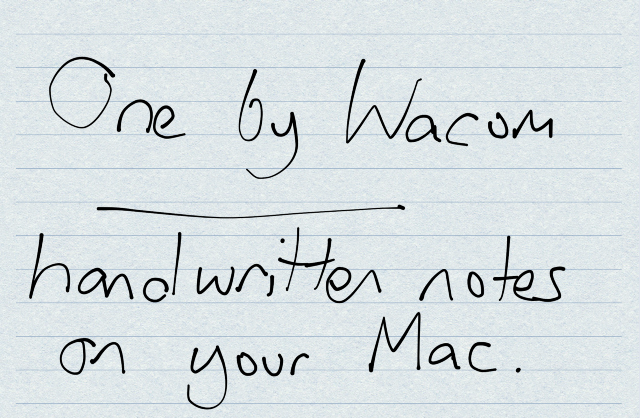 One by Wacom
handwritten notes
on your Mac.